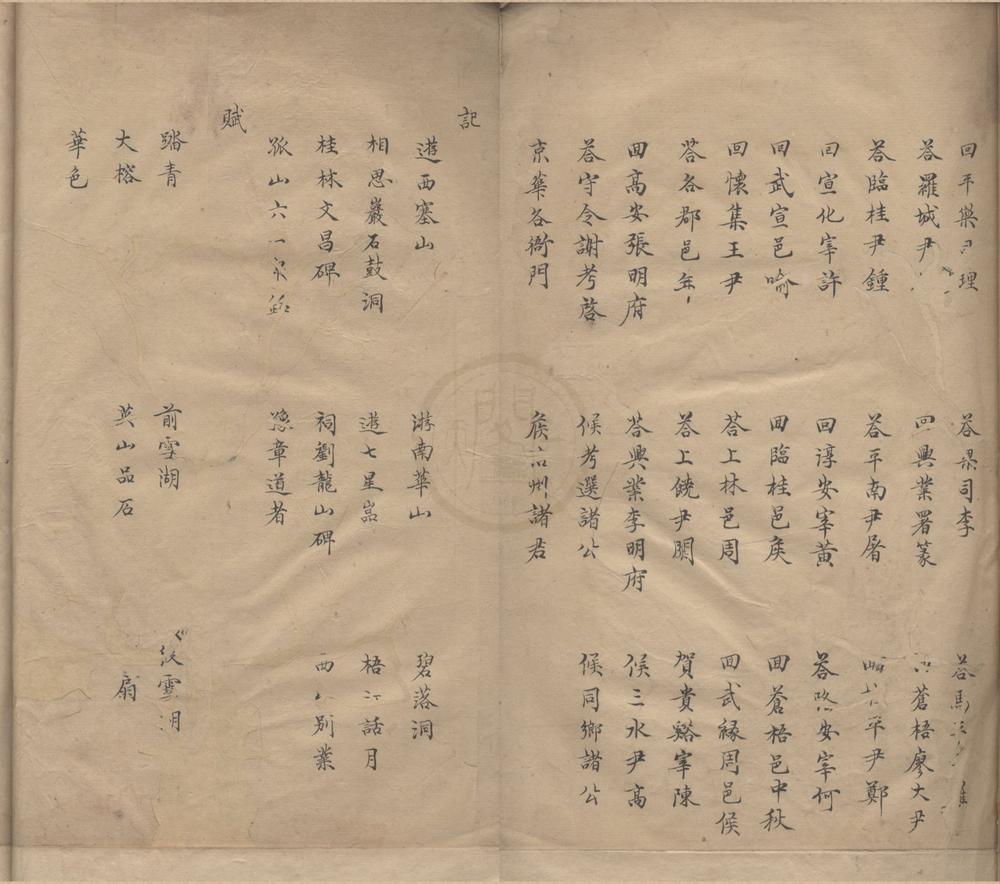 回平樂理 荅司李 荅馬
荅羅城尹 回興業署篆 蒼梧廖大尹
荅臨桂尹鍾 荅平南尹屠 平尹鄭
回宣化宰許 回淳安宰黃 荅安宰何
回武宣邑喻 回臨桂邑矦 回蒼梧邑中秋
回懷集王尹 荅上林邑周 回武緣周邑侯
荅各郡邑年 荅上饒尹関 賀貴谿宰陳
回高安張明府 荅興業李明府 候三水尹高
荅守令謝考啓 候考選諸公 候同鄉諸公
京華各衙門 矦州諸君
記
遊西塞山 游南華山 碧落洞
相思巖石鼓洞 遊七星嵓 梧江話月
桂林文昌碑 祠劉龍山碑 西山別業
孤山六一泉 豫章道者
賦
踏青 前雪湖 後雪湖
大榕 英山品石 扇
華色